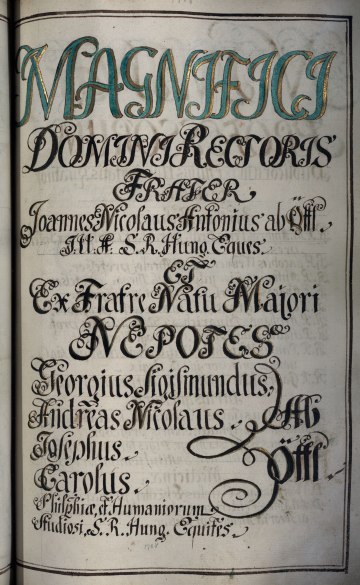 MAGNIFICI
DOMINI RECTORIS
FRATER
Joannes Nicolaus Antonius ab Öttl.
S. R. Hung. Eques.
ET
Ex Fratre Natu Majori
NEPOTES
Georgius Sigismundus.
Andreas Nicolaus. Ab
Josephus.
Carolus. Öttl
Philosophiæ, & Humaniorum
Studiosi, S. R. Hung. Equites.